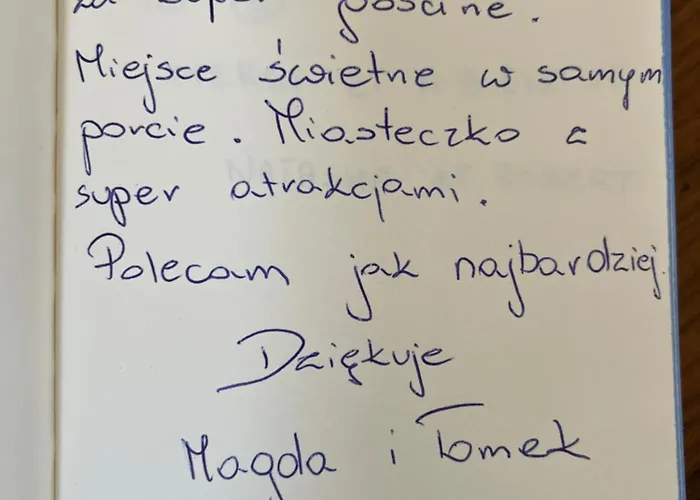 za super gościnę.
Miejsce świetne w samym
porcie. Miasteczko z
super atrakcjami.
Polecam jak najbardziej.
Dziękuje
Magda i Tomek